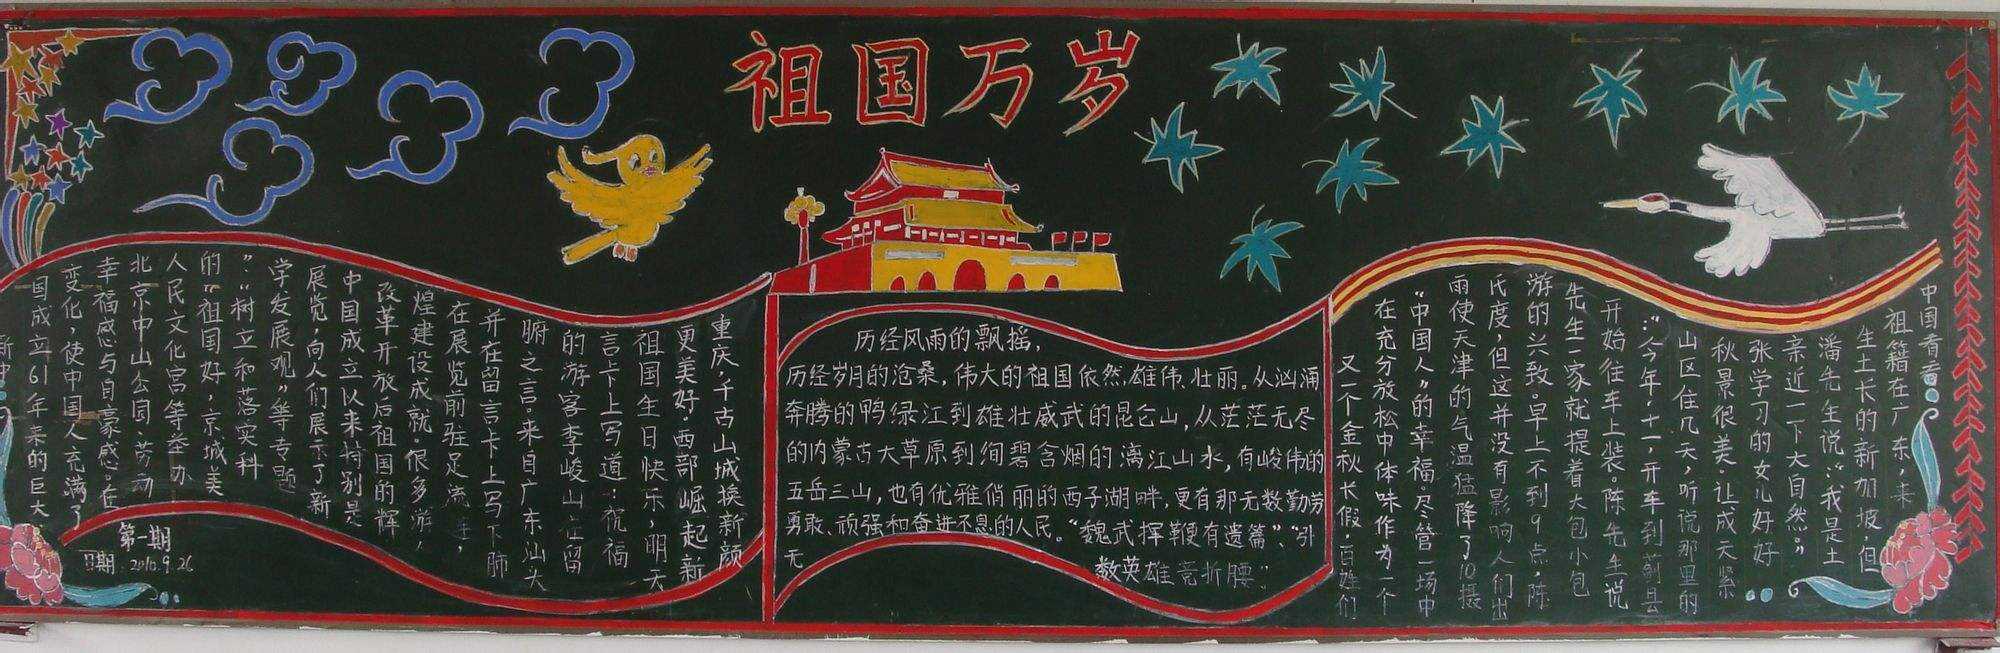 祖国万岁
新中
国成立61年来的巨大
变化,使中国人充满了
幸福感与自豪感。在
北京中山公园、劳动
人民文化宫等举办
的“祖国好,京城美
”:“树立和落实科
学发展观”等专题
展览,向人们展示了新
中国成立以来特别是
改革开放后祖国的辉
煌建设成就。很多游,
在展览前驻足流连,
并在留言卡上写下肺
腑之言。来自广东汕大
的游客李峻山在留
言卡上写道:祝福
祖国生日快乐,明天
更美好。西部崛起新
重庆,千古山城换新颜
第一期
日期:2010.9.26
历经风雨的飘摇,
历经岁月的沧桑,伟大的祖国依然雄伟、壮丽。从汹涌
奔腾的鸭绿江到雄壮威武的昆仑山,从茫茫无尽
的内蒙古大草原到绚碧含烟的漓江山水,有峻伟的
五岳三山,也有优雅俏丽的西子湖畔,更有那无数勤劳
勇敢、顽强和奋进不息的人民。“魏武挥鞭有遗篇”、“引
无
数英雄竞折腰”
又一个金秋长假,百姓们
在充分放松中体味作为一个
“中国人”的幸福。尽管一场中
雨使天津的气温猛降了10摄
氏度,但这并没有影响人们出
游的兴致。早上不到9点,陈
先生一家就提着大包小包
开始往车上装。陈先生说
:“今年‘十一’,开车到蓟县
山区住几天,听说那里的
秋景很美。让成天紧
张学习的女儿好好
亲近一下大自然。”
潘先生说:“我是土
生土长的新加坡,但
祖籍在广东,来
中国看看